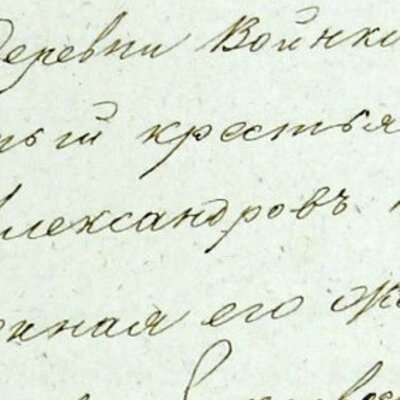 Деревни Войнки
тый крестья
Александровъ
нная его Же